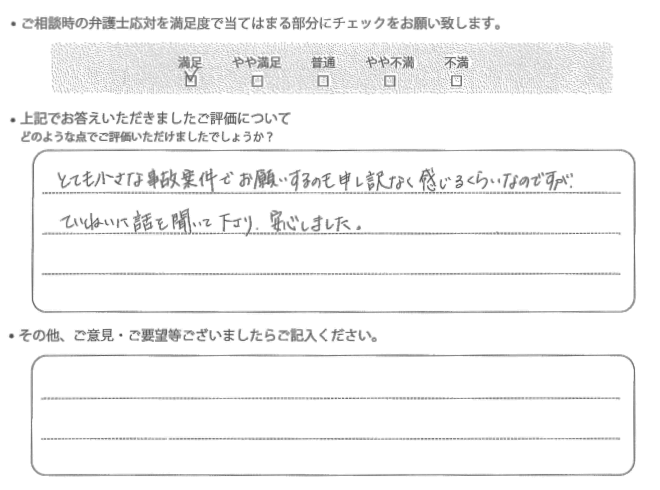 • ご相談時の弁護士応対を満足度で当てはまる部分にチェックをお願い致します。
満足 やや満足 普通 やや不満 不満
• 上記でお答えいただきましたご評価について
どのような点でご評価いただけましたでしょうか？
とても小さな事故案件でお願いするのも申し訳なく感じるくらいなのですが、
ていねいに話を聞いて下さり、安心しました。
• その他、ご意見・ご要望等ございましたらご記入ください。